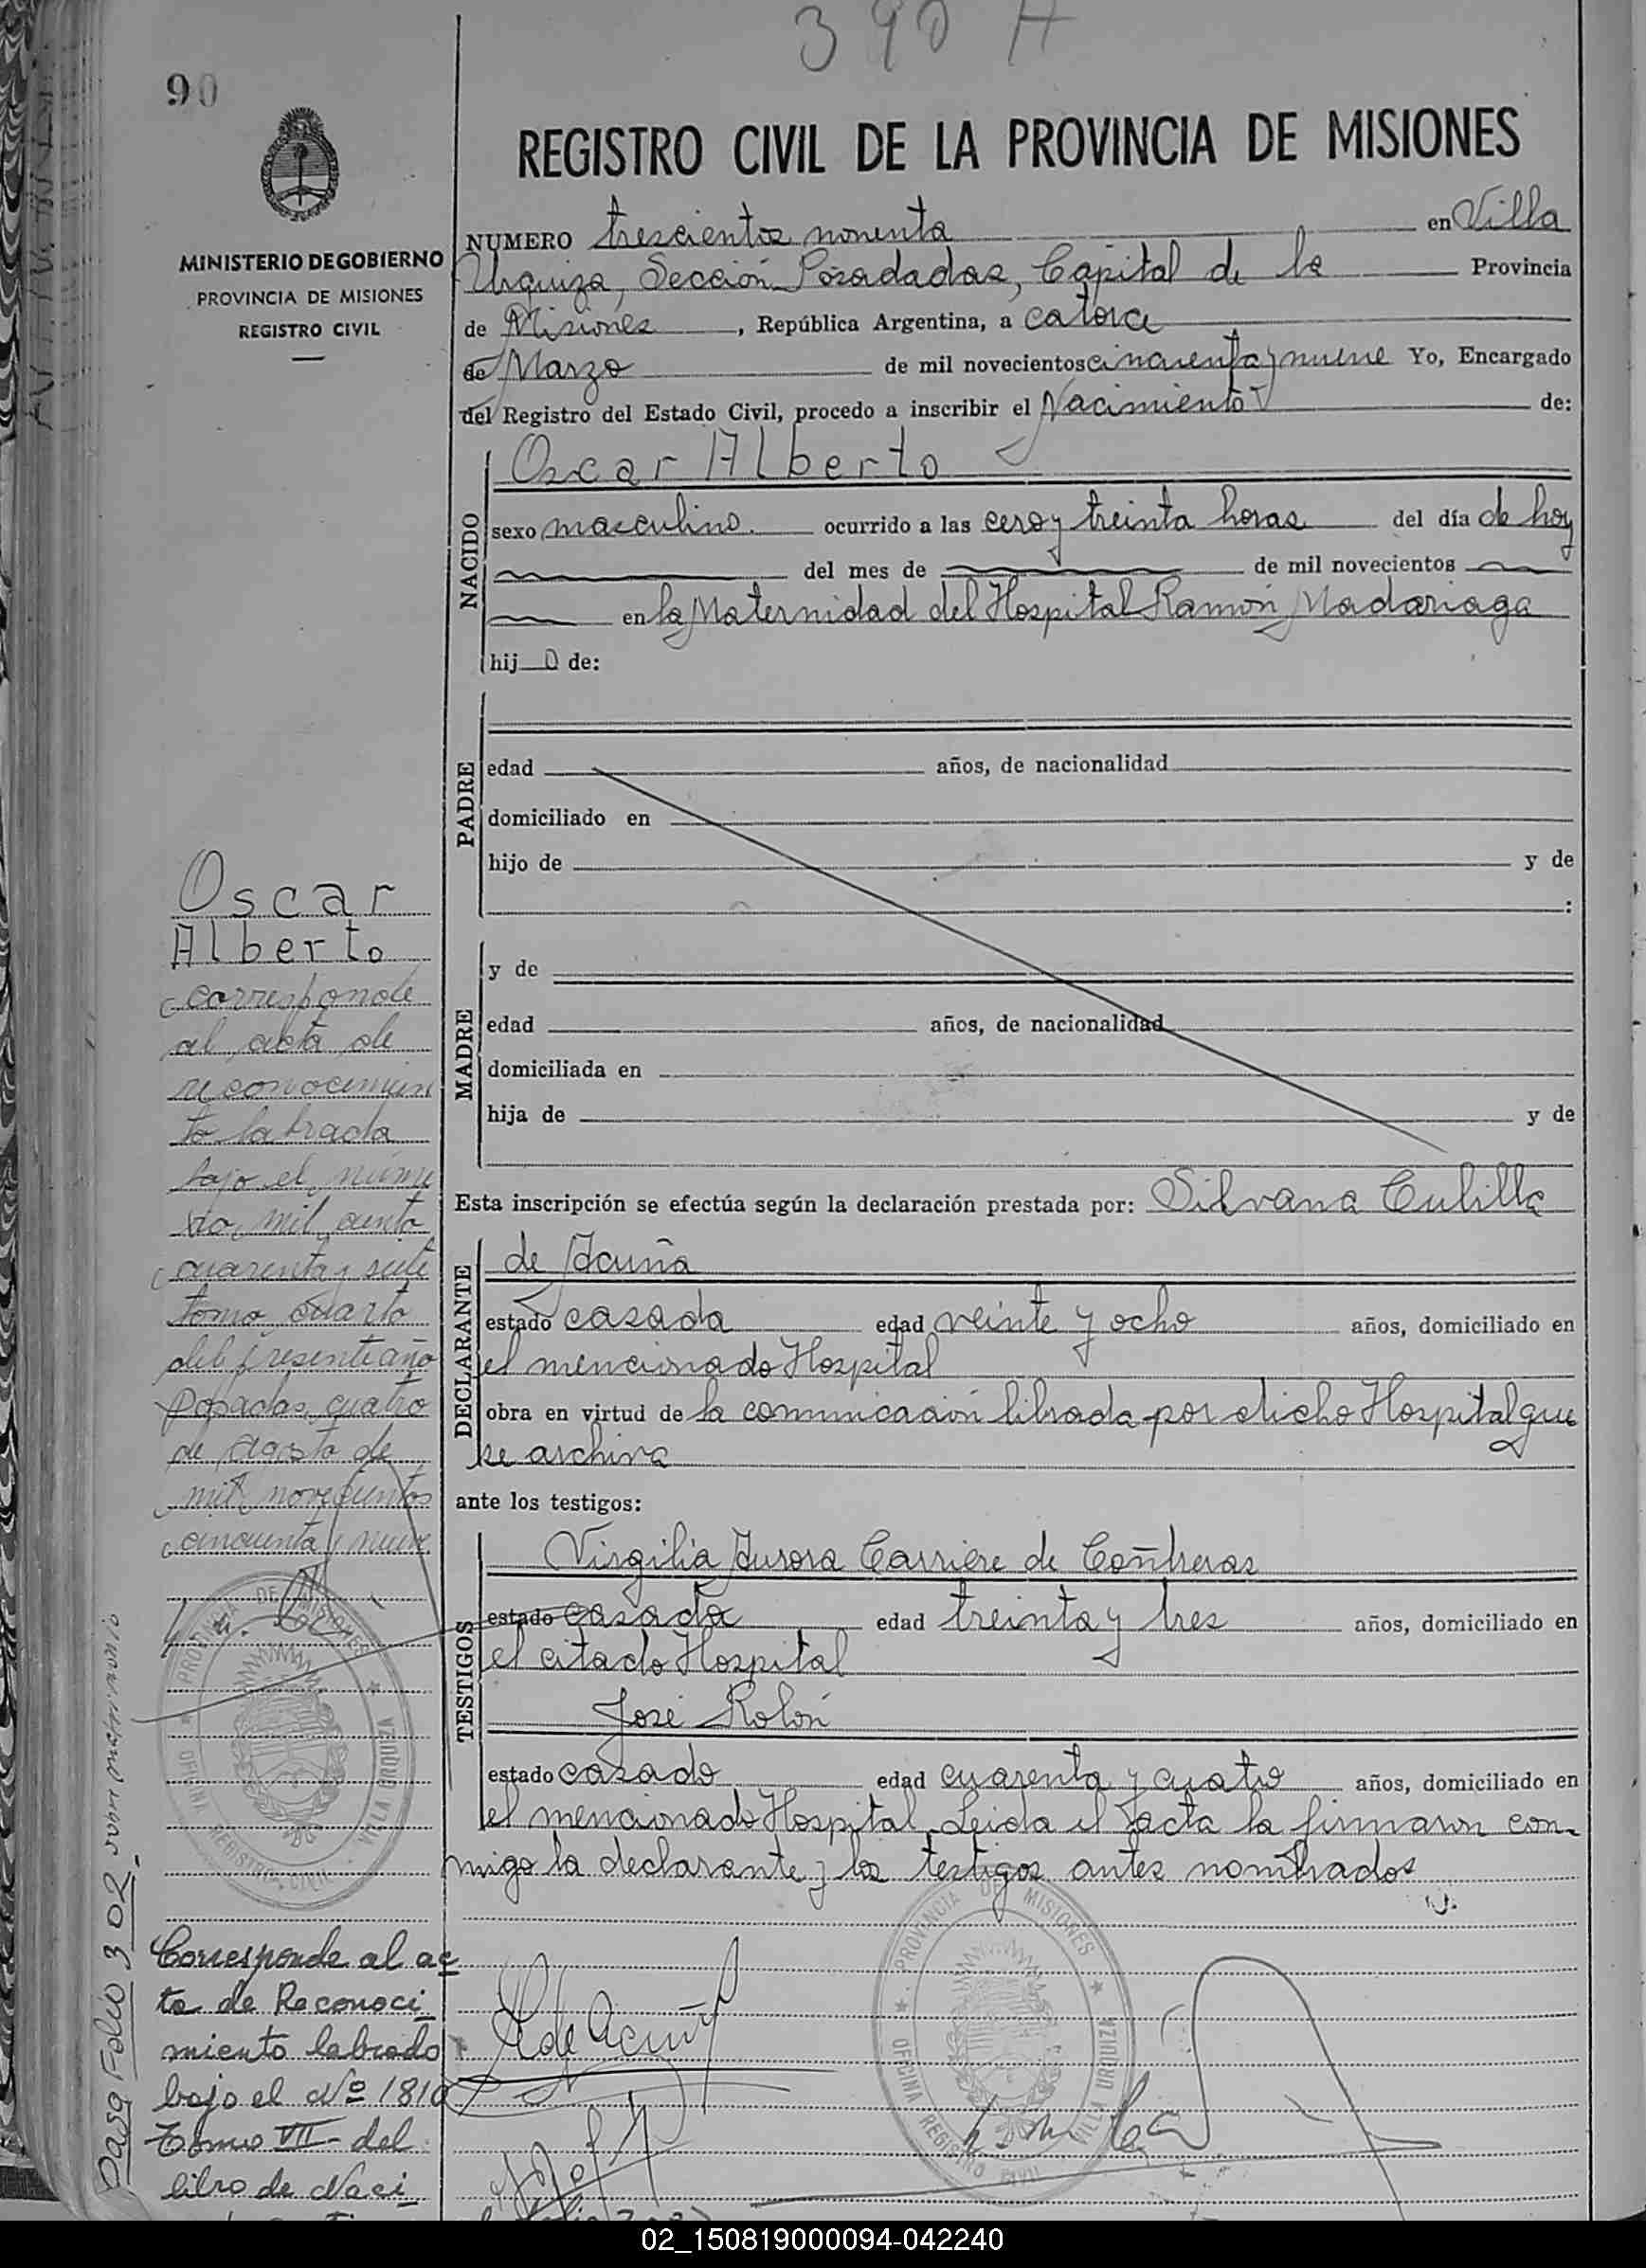 390 A
90
REGISTRO CIVIL DE LA PROVINCIA DE MISIONES
MINISTERIO DE GOBIERNO
PROVINCIA DE MISIONES
REGISTRO CIVIL
NUMERO trescientos noventa en Villa
Urquiza, Sección Posadadas, Capital de la Provincia
de Misiones, República Argentina, a catorce
de Marzo de mil novecientos cincuenta y nueve Yo, Encargado
del Registro del Estado Civil, procedo a inscribir el Nacimiento de:
NACIDO
Oscar Alberto
sexo masculino ocurrido a las cero y treinta horas del día de hoy
del mes de de mil novecientos
en la Maternidad del Hospital Ramón Madariaga
hijo de:
PADRE
edad años, de nacionalidad
domiciliado en
hijo de y de
:
MADRE
y de
edad años, de nacionalidad
domiciliada en
hija de y de
Esta inscripción se efectúa según la declaración prestada por: Silvana Culilla
DECLARANTE
de Acuña
estado casada edad veinte y ocho años, domiciliado en
el mencionado Hospital
obra en virtud de la comunicación librada por dicho Hospital que
se archiva
ante los testigos:
TESTIGOS
Virgilia Aurora Carriere de Contreras
estado casada edad treinta y tres años, domiciliado en
el citado Hospital
José Rolón
estado casado edad cuarenta y cuatro años, domiciliado en
el mencionado Hospital. Leida el acta la firmaron con-
migo la declarante y los testigos antes nombrados
de Acuña
PROVINCIA DE MISIONES
OFICINA REGISTRO CIVIL
VILLA URQUIZA
Oscar
Alberto
corresponde
al acta de
reconocimien
to labrada
bajo el núme
ro mil ciento
cuarenta y siete
tomo cuarto
del presente año
Posadas, cuatro
de Agosto de
mil novecientos
cincuenta y nueve
PROVINCIA DE MISIONES
OFICINA REGISTRO CIVIL
VILLA URQUIZA
Corresponde al ac
ta de Reconoci
miento labrado
bajo el Nº 1810
Tomo VII del
libro de Naci
Pasa Folio 302 sobre matrimonio
02_150819000094-042240